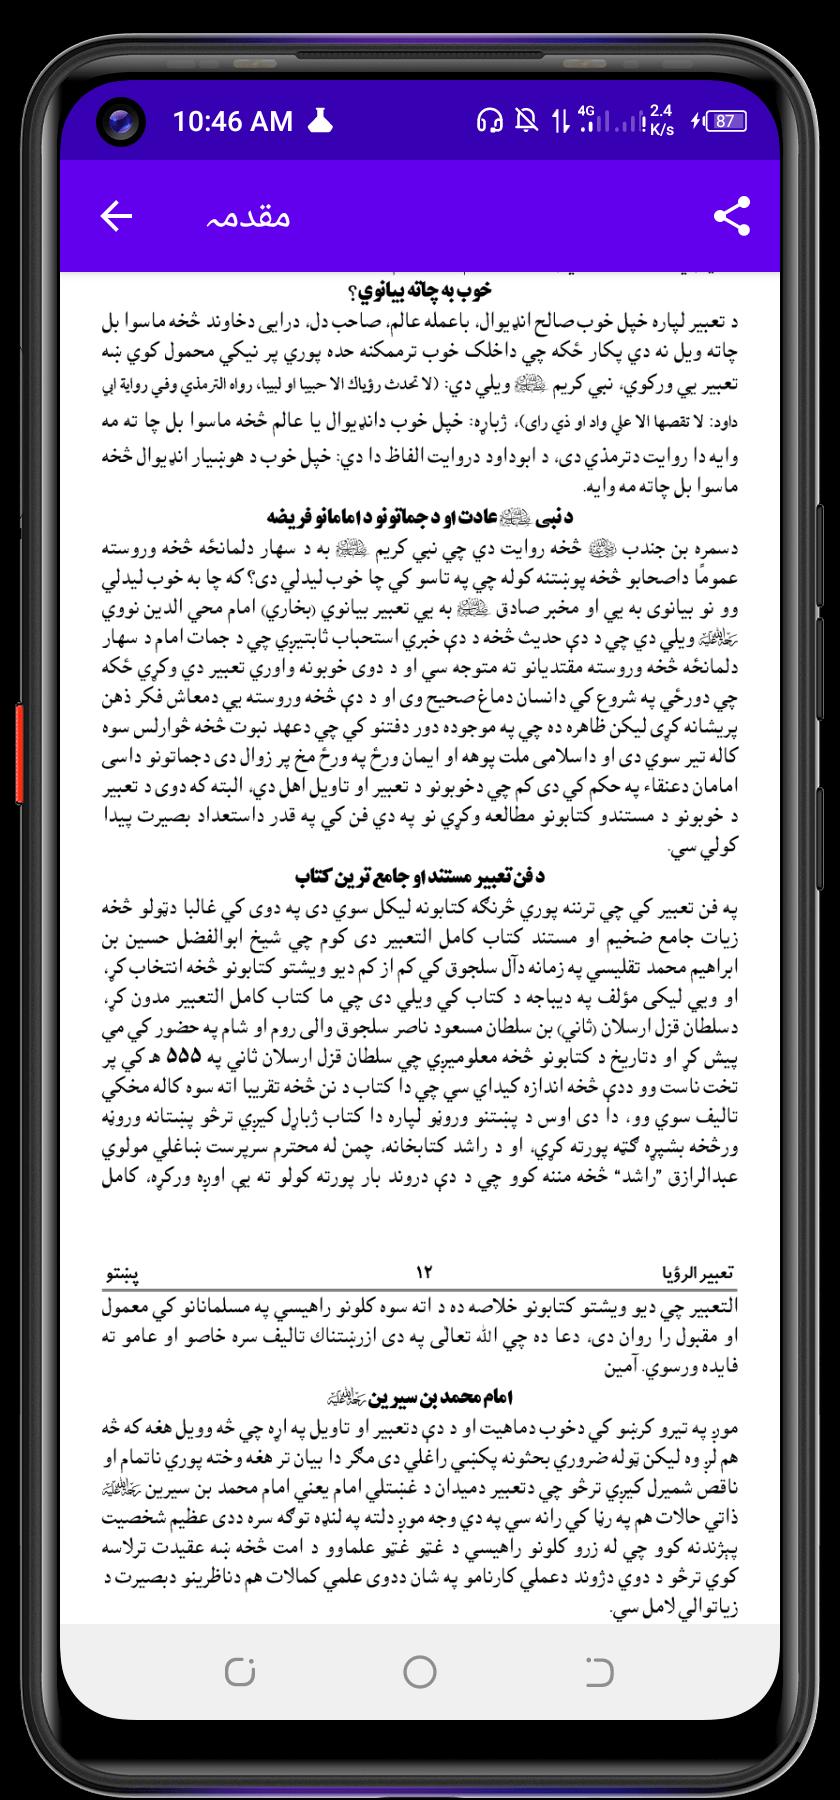 10:46 AM
4G
2.4
K/s
87
مقدمہ
خوب به چاته بيانوي؟
د تعبير لپاره خپل خوب صالح انډيوال، باعمله عالم، صاحب دل، درايی دخاوند څخه ماسوا بل
چاته ويل نه دي پکار ځکه چي داخلک خوب ترممکنه حده پوري پر نيکي محمول کوي ښه
تعبير يې ورکوي، نبي کريم ﷺ ويلي دي: (لا تحدث رؤياك الا حبيبا او لبيبا، رواه الترمذي وفي رواية ابي
داود: لا تقصها الا علي واد او ذي رای)، ژباړه: خپل خوب دانډيوال يا عالم څخه ماسوا بل چا ته مه
وايه دا روايت دترمذي دی، د ابوداود دروايت الفاظ دا دي: خپل خوب د هوښيار انډيوال څخه
ماسوا بل چاته مه وايه.
د نبی ﷺ عادت او د جماتونو د امامانو فريضه
دسمره بن جندب ؓ څخه روايت دي چي نبي کريم ﷺ به د سهار دلمانځه څخه وروسته
عمومًا داصحابو څخه پوښتنه کوله چي په تاسو کي چا خوب ليدلي دی؟ که چا به خوب ليدلي
وو نو بيانوی به يي او مخبر صادق ﷺ به يي تعبير بيانوي (بخاري) امام محي الدين نووي
ؒ ويلي دي چي د دې حديث څخه د دې خبري استحباب ثابتيږي چي د جمات امام د سهار
دلمانځه څخه وروسته مقتديانو ته متوجه سي او د دوی خوبونه واوري تعبير دي وکړي ځکه
چي دورځي په شروع کي دانسان دماغ صحيح وی او د دې څخه وروسته يي دمعاش فکر ذهن
پريشانه کړی ليکن ظاهره ده چي په موجوده دور دفتنو کي چي دعهد نبوت څخه څوارلس سوه
کاله تير سوي دی او داسلامی ملت پوهه او ايمان ورځ په ورځ مخ پر زوال دی دجماتونو داسی
امامان دعنقاء په حکم کي دی کم چي دخوبونو د تعبير او تاويل اهل دي، البته که دوی د تعبير
د خوبونو د مستندو کتابونو مطالعه وکړي نو په دي فن کي په قدر داستعداد بصيرت پيدا
کولي سي.
د فن تعبير مستند او جامع ترين کتاب
په فن تعبير کي چي ترننه پوري څرنګه کتابونه ليکل سوي دی په دوی کي غالبا دټولو څخه
زيات جامع ضخيم او مستند کتاب کامل التعبير دی کوم چي شيخ ابوالفضل حسين بن
ابراهيم محمد تقليسي په زمانه دآل سلجوق کي کم از کم ديو ويشتو کتابونو څخه انتخاب کړ،
او ويي ليکی مؤلف په ديباجه د کتاب کي ويلي دی چي ما کتاب کامل التعبير مدون کړ،
دسلطان قزل ارسلان (ثاني) بن سلطان مسعود ناصر سلجوق والی روم او شام په حضور کي مي
پيش کړ او دتاريخ د کتابونو څخه معلوميږي چي سلطان قزل ارسلان ثاني په ۵۵۵ هـ کي پر
تخت ناست وو ددې څخه اندازه کيدای سي چي دا کتاب د نن څخه تقريبا اته سوه کاله مخکي
تاليف سوي وو، دا دی اوس د پښتنو وروڼو لپاره دا کتاب ژباړل کيږي ترڅو پښتانه وروڼه
ورڅخه بشپړه ګټه پورته کړي، او د راشد کتابخانه، چمن له محترم سرپرست ښاغلي مولوي
عبدالرازق "راشد" څخه مننه کوو چي د دې دروند بار پورته کولو ته يې اوږه ورکړه، کامل
تعبير الرؤيا
۱۲
پښتو
التعبير چي ديو ويشتو کتابونو خلاصه ده د اته سوه کلونو راهيسي په مسلمانانو کي معمول
او مقبول را روان دی، دعا ده چي الله تعالٰی په دی ارزښتناك تاليف سره خاصو او عامو ته
فايده ورسوي. آمين
امام محمد بن سيرين ؒ
موږ په تيرو کرښو کي دخوب دماهيت او د دې دتعبير او تاويل په اړه چي څه وويل هغه که څه
هم لږ وه ليکن ټوله ضروري بحثونه پکښي راغلي دی مګر دا بيان تر هغه وخته پوري ناتمام او
ناقص شميرل کيږي ترڅو چي دتعبير دميدان د غښتلي امام يعني امام محمد بن سيرين ؒ
ذاتي حالات هم په رڼا کي رانه سي په دي وجه موږ دلته په لنډه توګه سره ددی عظيم شخصيت
پېژندنه کوو چي له زرو کلونو راهيسي د غټو غټو علماوو د امت څخه ښه عقيدت ترلاسه
کوي ترڅو د دوي دژوند دعملي کارنامو په شان ددوی علمي کمالات هم دناظرينو دبصيرت د
زياتوالي لامل سي.